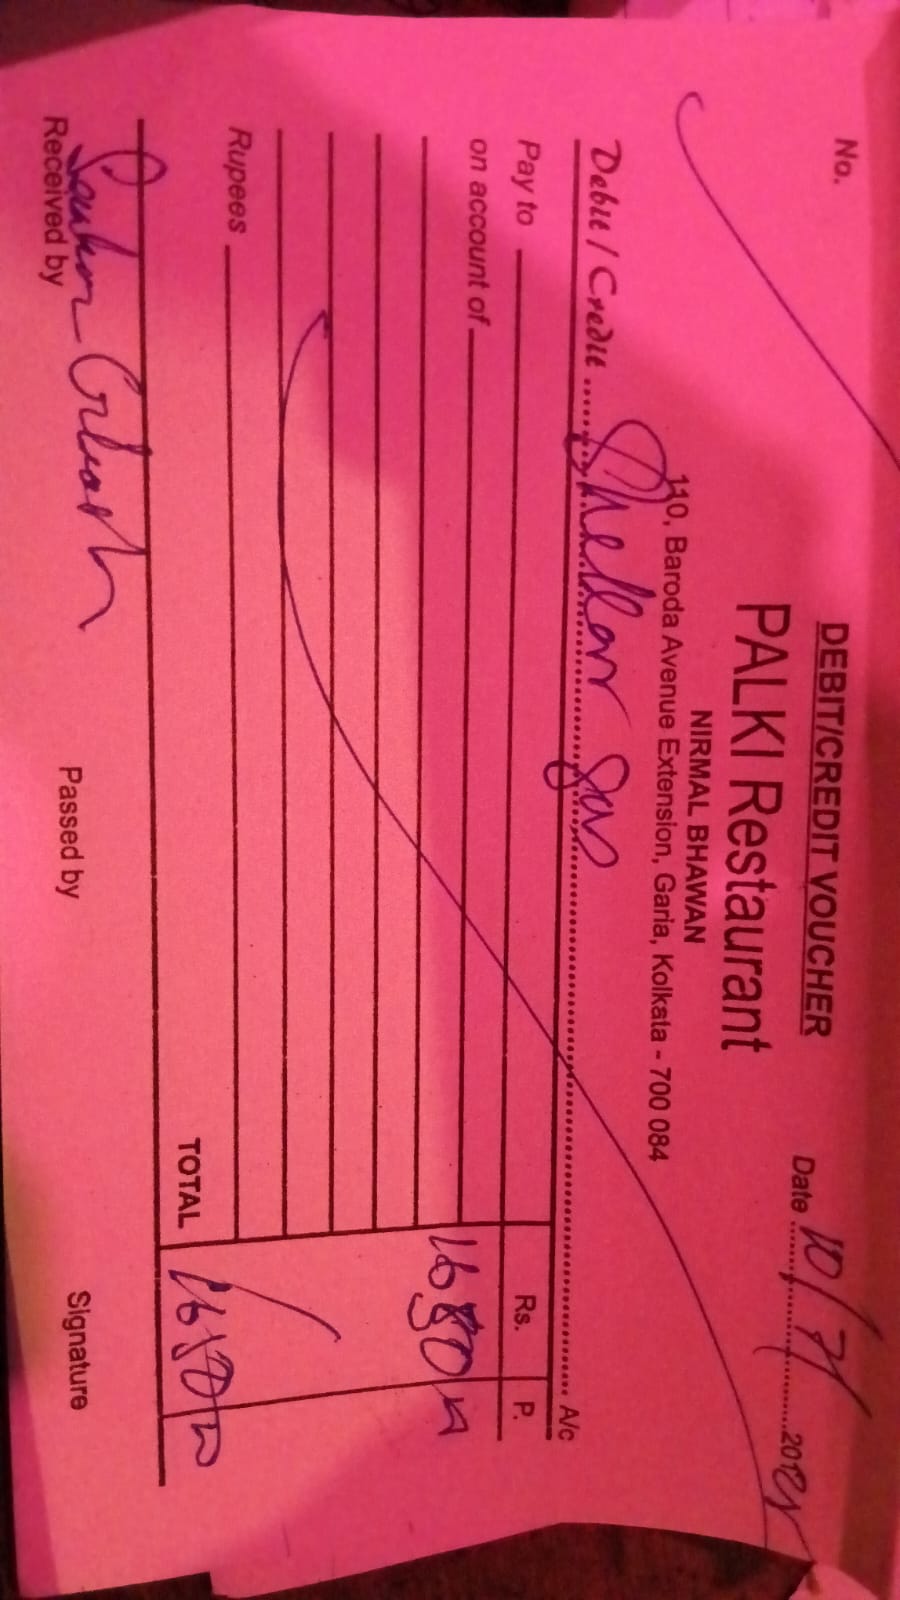 No.
DEBIT/CREDIT VOUCHER
PALKI Restaurant
NIRMAL BHAWAN
110, Baroda Avenue Extension, Garia, Kolkata - 700 084
Date 10/7/ 201
Debit / Credit A/c
Pay to Rs. P.
on account of
Rupees
TOTAL
Received by Passed by Signature